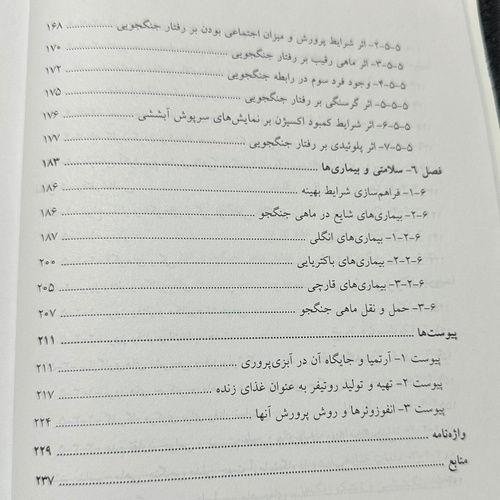 ۵-۵-۲- اثر شرایط پرورش و میزان اجتماعی بودن بر رفتار جنگجویی ........ ۱۶۸
۵-۵-۳- اثر ماهی رقیب بر رفتار جنگجویی ........ ۱۷۰
۵-۵-۴- وجود فرد سوم در رابطه جنگجویی ........ ۱۷۲
۵-۵-۵- اثر گرسنگی بر رفتار جنگجویی ........ ۱۷۵
۵-۵-۶- اثر شرایط کمبود اکسیژن بر نمایش‌های سرپوش آبششی ........ ۱۷۶
۵-۵-۷- اثر پلوئیدی بر رفتار جنگجویی ........ ۱۷۷
فصل ۶- سلامتی و بیماری‌ها ........ ۱۸۳
۶-۱- فراهم‌سازی شرایط بهینه ........ ۱۸۶
۶-۲- بیماری‌های شایع در ماهی جنگجو ........ ۱۸۶
۶-۲-۱- بیماری‌های انگلی ........ ۱۸۷
۶-۲-۲- بیماری‌های باکتریایی ........ ۲۰۰
۶-۲-۳- بیماری‌های قارچی ........ ۲۰۵
۶-۳- حمل و نقل ماهی جنگجو ........ ۲۰۷
پیوست‌ها ........ ۲۱۱
پیوست ۱- آرتمیا و جایگاه آن در آبزی‌پروری ........ ۲۱۱
پیوست ۲- تهیه و تولید روتیفر به عنوان غذای زنده ........ ۲۱۷
پیوست ۳- انفوزوئرها و روش پرورش آنها ........ ۲۲۴
واژه‌نامه ........ ۲۲۹
منابع ........ ۲۳۷